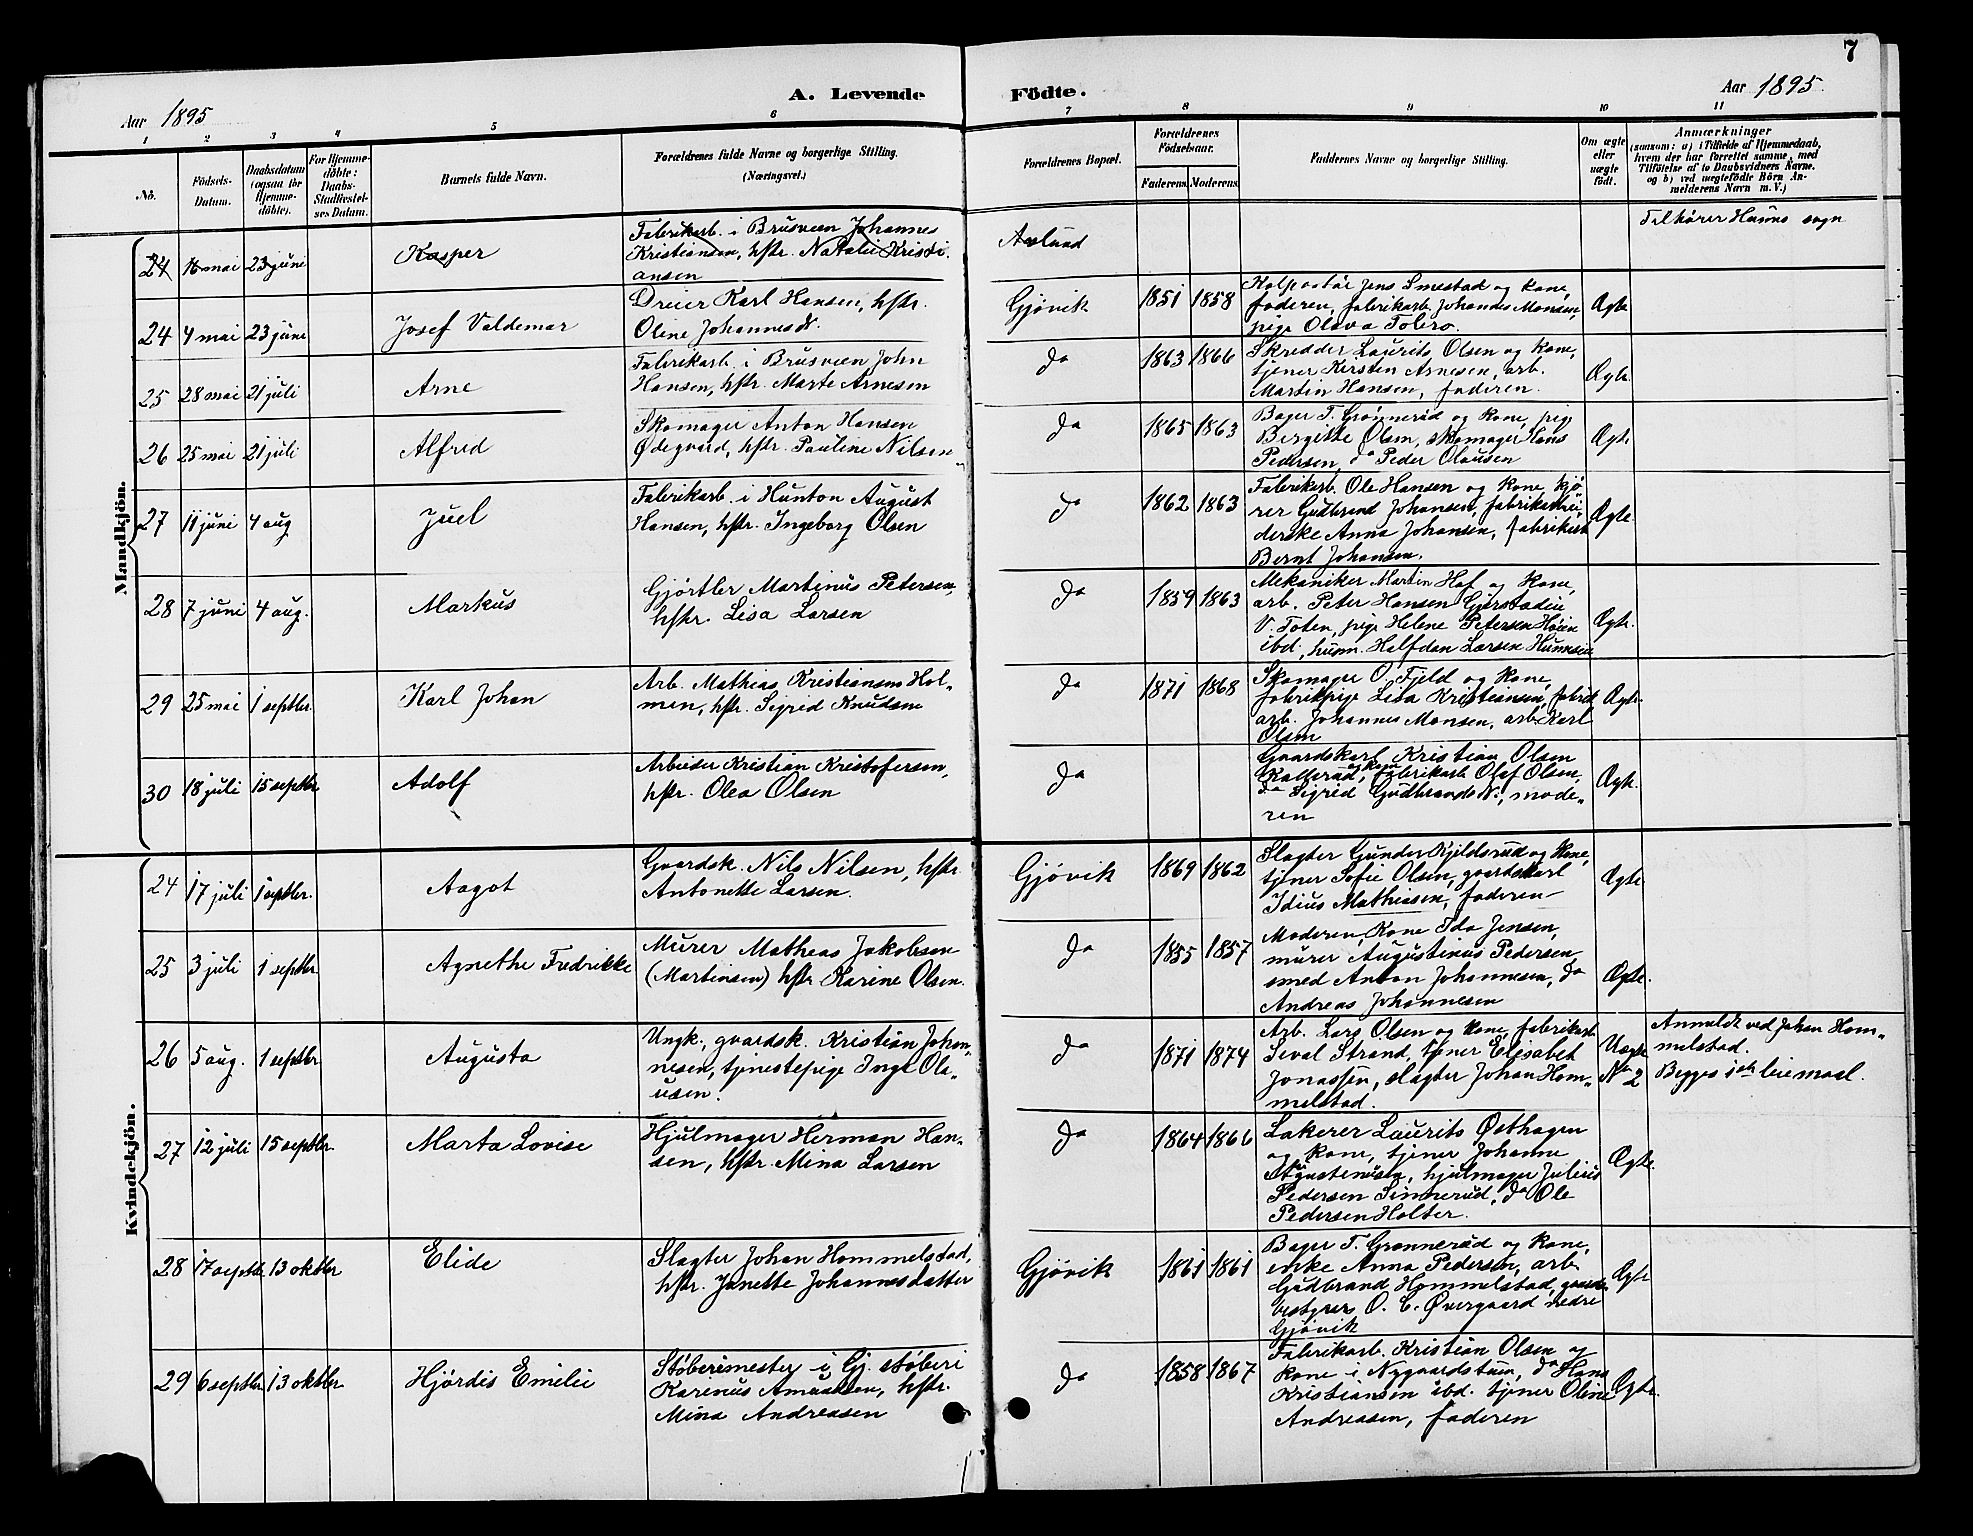 7
Aar 1895
A. Levende Födte.
Aar 1895.
1 2 3 4 5 6 7 8 9 10 11
No.
Födsels-
Datum.
Daabsdatum
(ogsaa for
Hjemme-
döbte).
For Hjemme-
döbte:
Daabs-
Stadfæstel-
ses Datum.
Barnets fulde Navn.
Forældrenes fulde Navne og borgerlige Stilling.
(Næringsvei.)
Forældrenes Bopæl.
Forældrenes
Födselsaar.
Faderens. Moderens.
Faddernes Navne og borgerlige Stilling.
Om ægte
eller
uægte
födt.
Anmærkninger
(saasom: a) i Tilfælde af Hjemmedaab,
hvem der har forrettet samme, med
Tilföielse af to Daabsvidners Navne.
og b) ved uægtefödte Börn An-
melderens Navn m. V.)
Mandkjön.
24 16 mai 23 juni Kasper
Fabrikarb. i Brusveen Johannes
Kristiansen, hstr. Natalie Kristi-
ansen
Aslund
Tilhører Hunns sogn
24 4 mai 23 juni Josef Valdemar
Dreier Karl Hansen, hstr.
Olene Johannesdt.
Gjøvik 1851 1858
Jens Smestad og kone,
faderen, fabrikarb. Johannes Monsen,
pige Olava
Ægte
25 28 mai 21 juli Arne
Fabrikarb. i Brusveen John
Hansen, hstr. Marte Arnesen
Do 1863 1866
Skredder Laurits Olsen og kone,
tjener Kersten Arnesen, arb.
Martin Hansen, faderen.
Ægte.
26 25 mai 21 juli Alfred
Skomager Anton Hansen
Ødegaard, hstr. Pauline Nilsen
Do 1865 1863
Bager T. Grønnerud og kone, pige
Bergitte Olsen, skomager Hans
Pedersen, do Peder Olausen
Ægte.
27 11 juni 4 aug Juel
Fabrikarb. i Hunton August
Hansen, hstr. Ingeborg Olsen
Do 1862 1863
Fabrikarb. Ole Hansen og kone, kjø-
rer Gudbrand Johansen,
Anna Johansen, fabrikarb
Bernt Johansen.
Ægte.
28 7 juni 4 aug. Markus
Gjørtler Martinus Petersen,
hstr. Lisa Larsen
Do 1859 1863
Mekaniker Martin Hof og kone,
arb. Peter Hansen
V. Toten, pige Helene Petersen Høien
ibd., Halfdan Larsen
Ægte.
29 25 mai 1 septbr. Karl Johan
Arb. Mathias Kristiansen Hol-
men, hstr. Sigrid Knudsen
Do 1871 1868
Skomager O. Fjeld og kone,
fabrikpige Lisa Kristiansen, fabrik
arb. Johannes Monsen, arb. Karl
Olsen
Ægte.
30 18 juli 15 septbr Adolf
Arbeider Kristian Kristofersen,
hstr. Olea Olsen
Do
Gaardskarl Kristian Olsen
Kallerud, og kone, fabrikarb. Olaf Olsen,
do Sigrid Gudbrandsdt., mode-
ren
Ægte.
Kvindekjön.
24 17 juli 1 septbr. Aagot
Gaardsk. Nils Nilsen, hstr.
Antonette Larsen.
Gjøvik 1869 1862
Slagter Gunder Kjeldsrud og kone,
tjener Sofie Olsen, gaardskarl
Idius Mathiasen, faderen
Ægte.
25 3 juli 1 septbr Agnethe Fredrikke
Murer Matheas Jakobsen
(Martensen) hstr. Karine Olsen.
Do 1855 1857
Moderen, Kone Ida Jensen,
murer Augustinus Pedersen,
smed Anton Johannesen, do
Andreas Johannesen
Ægte.
26 5 aug. 1 septbr Augusta
Ungk., gaardsk. Kristian Johan-
nesen, tjenestepige Inge Ola-
usen.
Do 1871 1874
Arb. Lars Olsen og kone, fabrikarb.
Sevat Strand, tjener Elisabet
Jonassen, slagter Johan Hom-
melstad.
Uægte
No 2
Anmeldt ved Johan Hom-
melstad.
Begges 1ste leiemaal.
27 12 juli 15 septbr. Marta Lovise
Hjulmager Herman Han-
sen, hstr. Mina Larsen
Do 1864 1866
Lakerer Laurits Østhagen
og kone, tjener Johanne
Augustenusen, hjulmager Julius
Pedersen Sinnerud, do Ole
Pedersen Holter.
Ægte.
28 17 septbr. 13 oktbr Elide
Slagter Johan Hommelstad,
hstr. Janette Johannesdatter
Gjøvik 1861 1861
Bager T. Grønnerud og kone,
enke Anna Pedersen, arb.
Gudbrand Hommelstad, gaards-
bestyrer O. C. Øvergaard nedre
Gjøvik
Ægte
29 6 septbr. 13 oktbr Hjørdis Emilie
Støberimester i Gj. støberi
Karinus Amundsen, hstr.
Mina Andreasen
Do 1858 1867
Fabrikarb. Kristian Olsen og
kone i Nygaardstuen, do Hans
Kristiansen ibd. tjener Oline
Andreasen, faderen
Ægte.